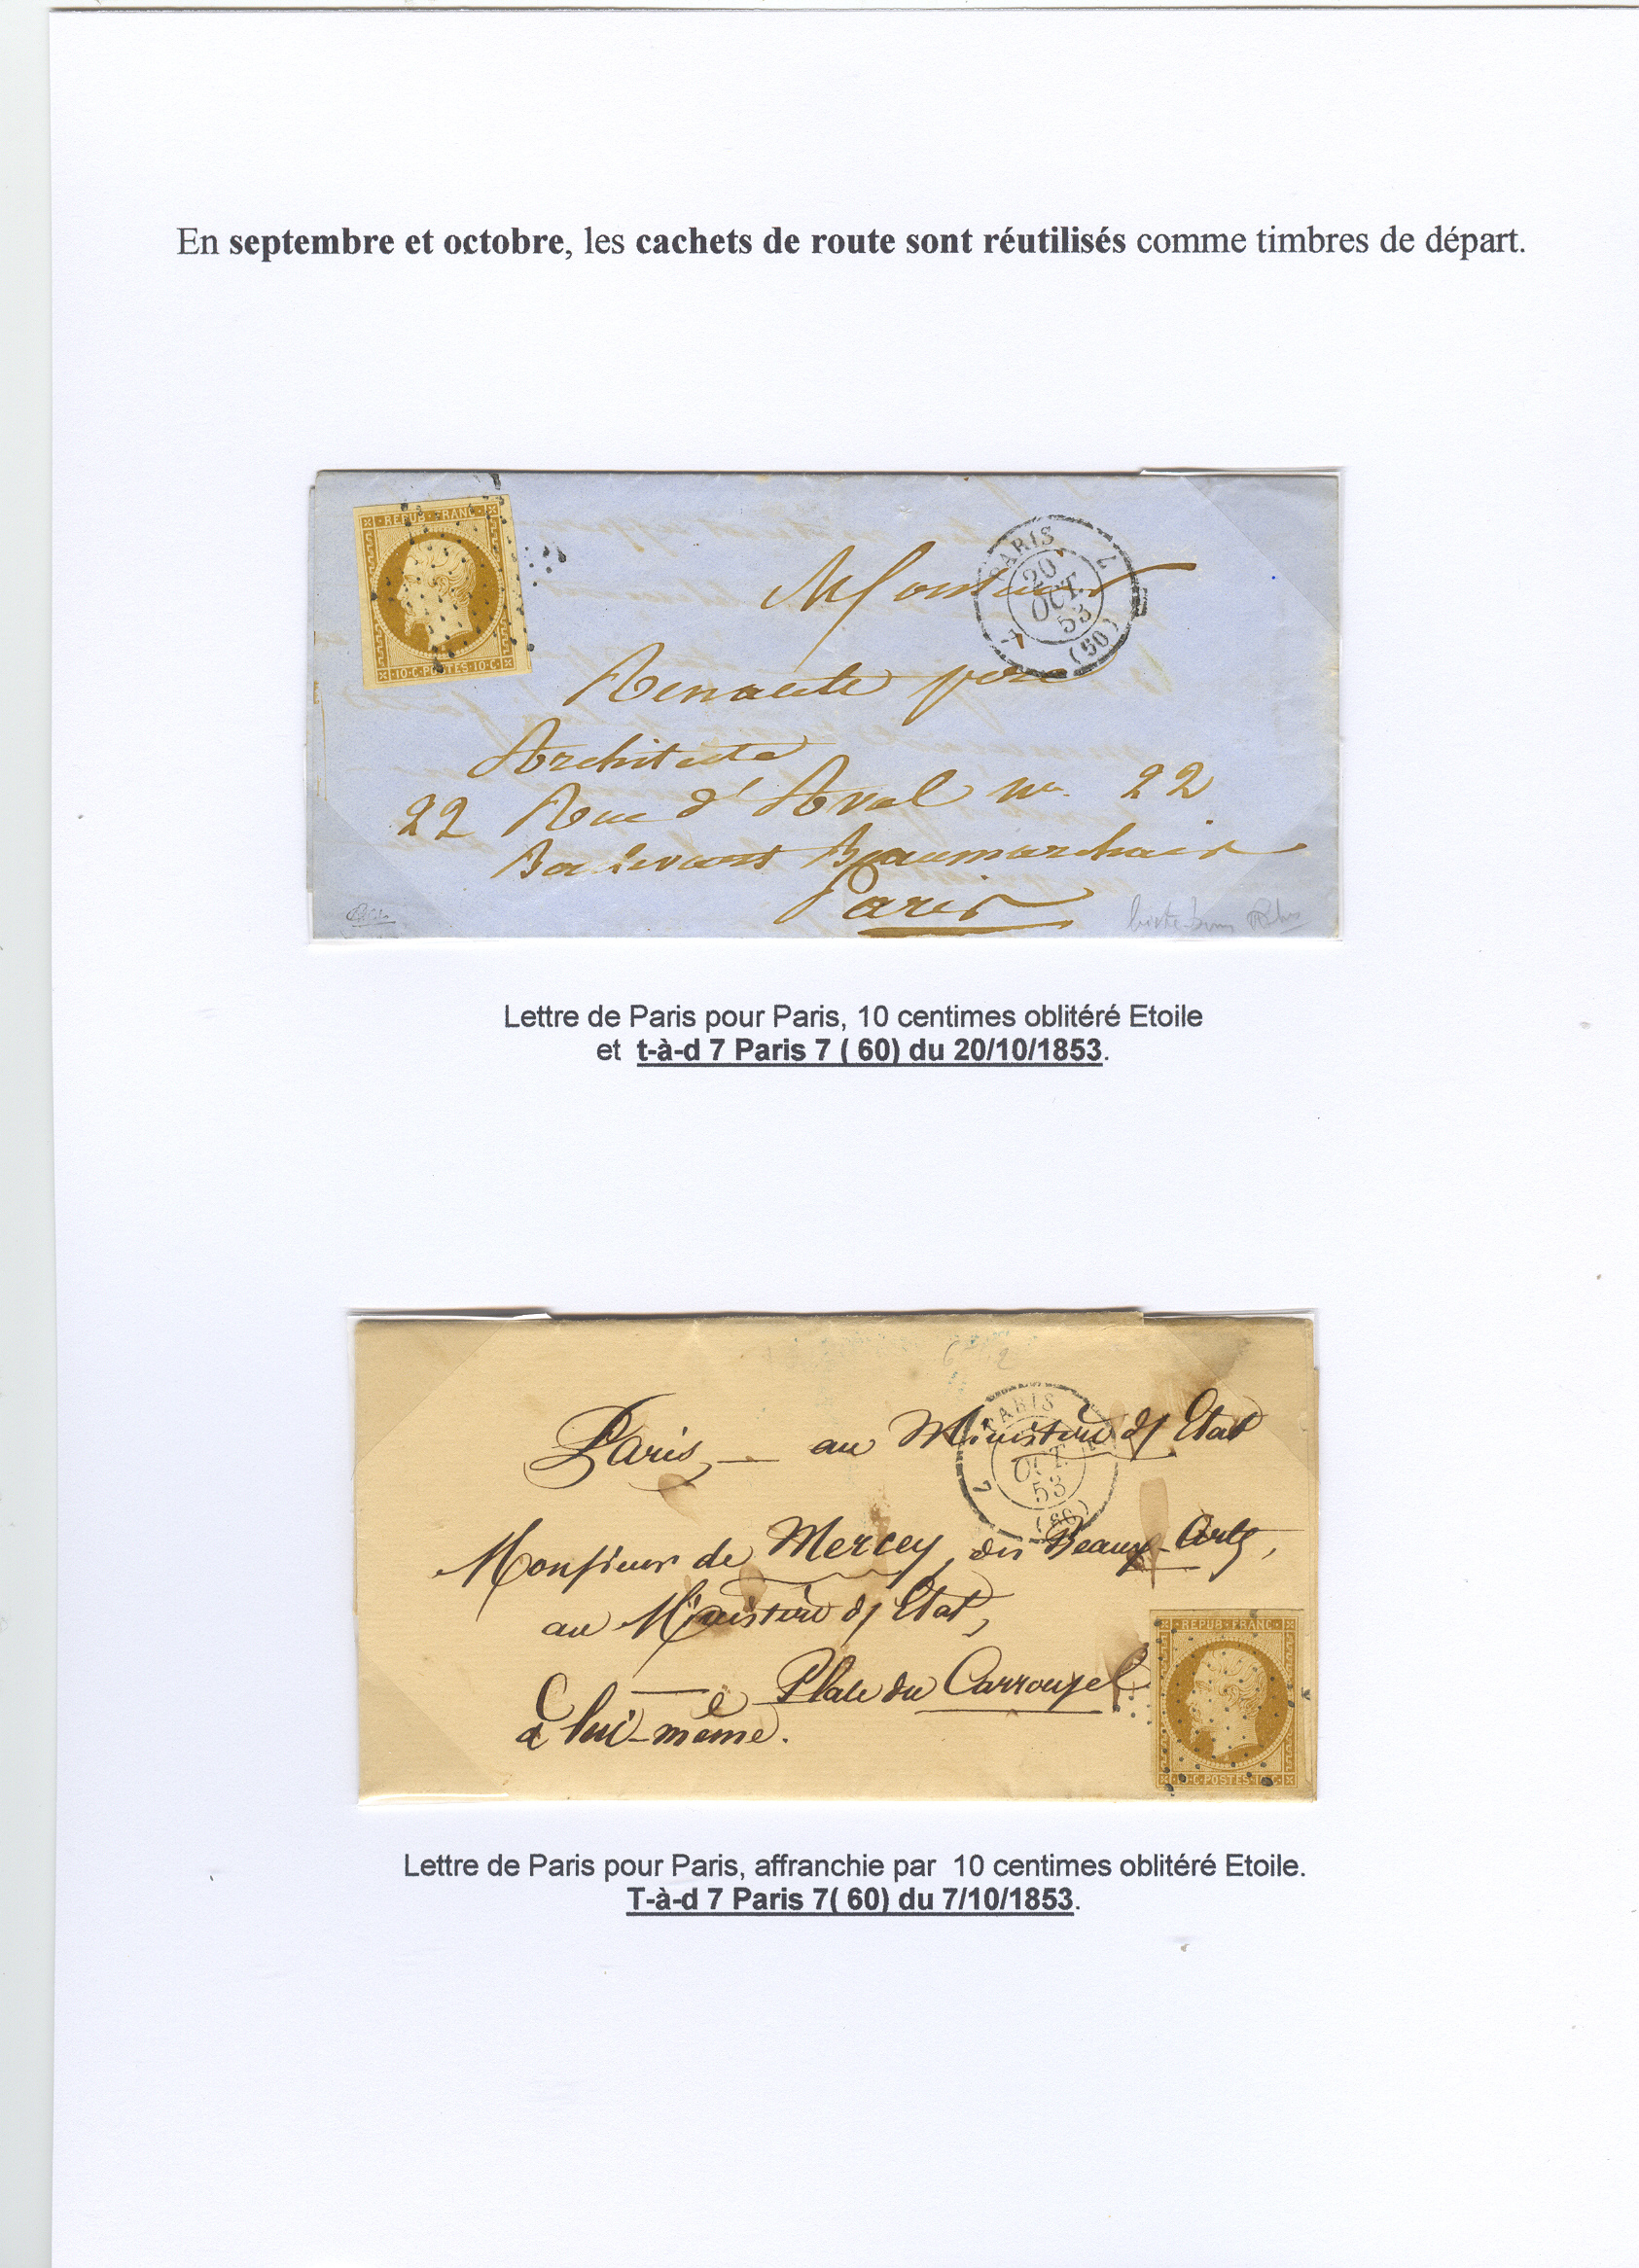 En septembre et octobre, les cachets de route sont réutilisés comme timbres de départ.
REPUB FRANC
10 C POSTES 10 C
PARIS
7
20
OCT.
53
7
(60)
Monsieur
père
Architecte
22 Rue d'Aval no. 22
Boulevart Beaumarchais
Paris
Lettre de Paris pour Paris, 10 centimes oblitéré Etoile
et t-à-d 7 Paris 7 ( 60) du 20/10/1853.
PARIS
OCT
53
7
(60)
Paris, — au Ministère d'Etat
Monsieur de Mercey, des Beaux-Arts,
au Ministère d'Etat,
Place du Carrouzel
à lui-même.
REPUB FRANC
10 C POSTES 10 C
Lettre de Paris pour Paris, affranchie par 10 centimes oblitéré Etoile.
T-à-d 7 Paris 7( 60) du 7/10/1853.